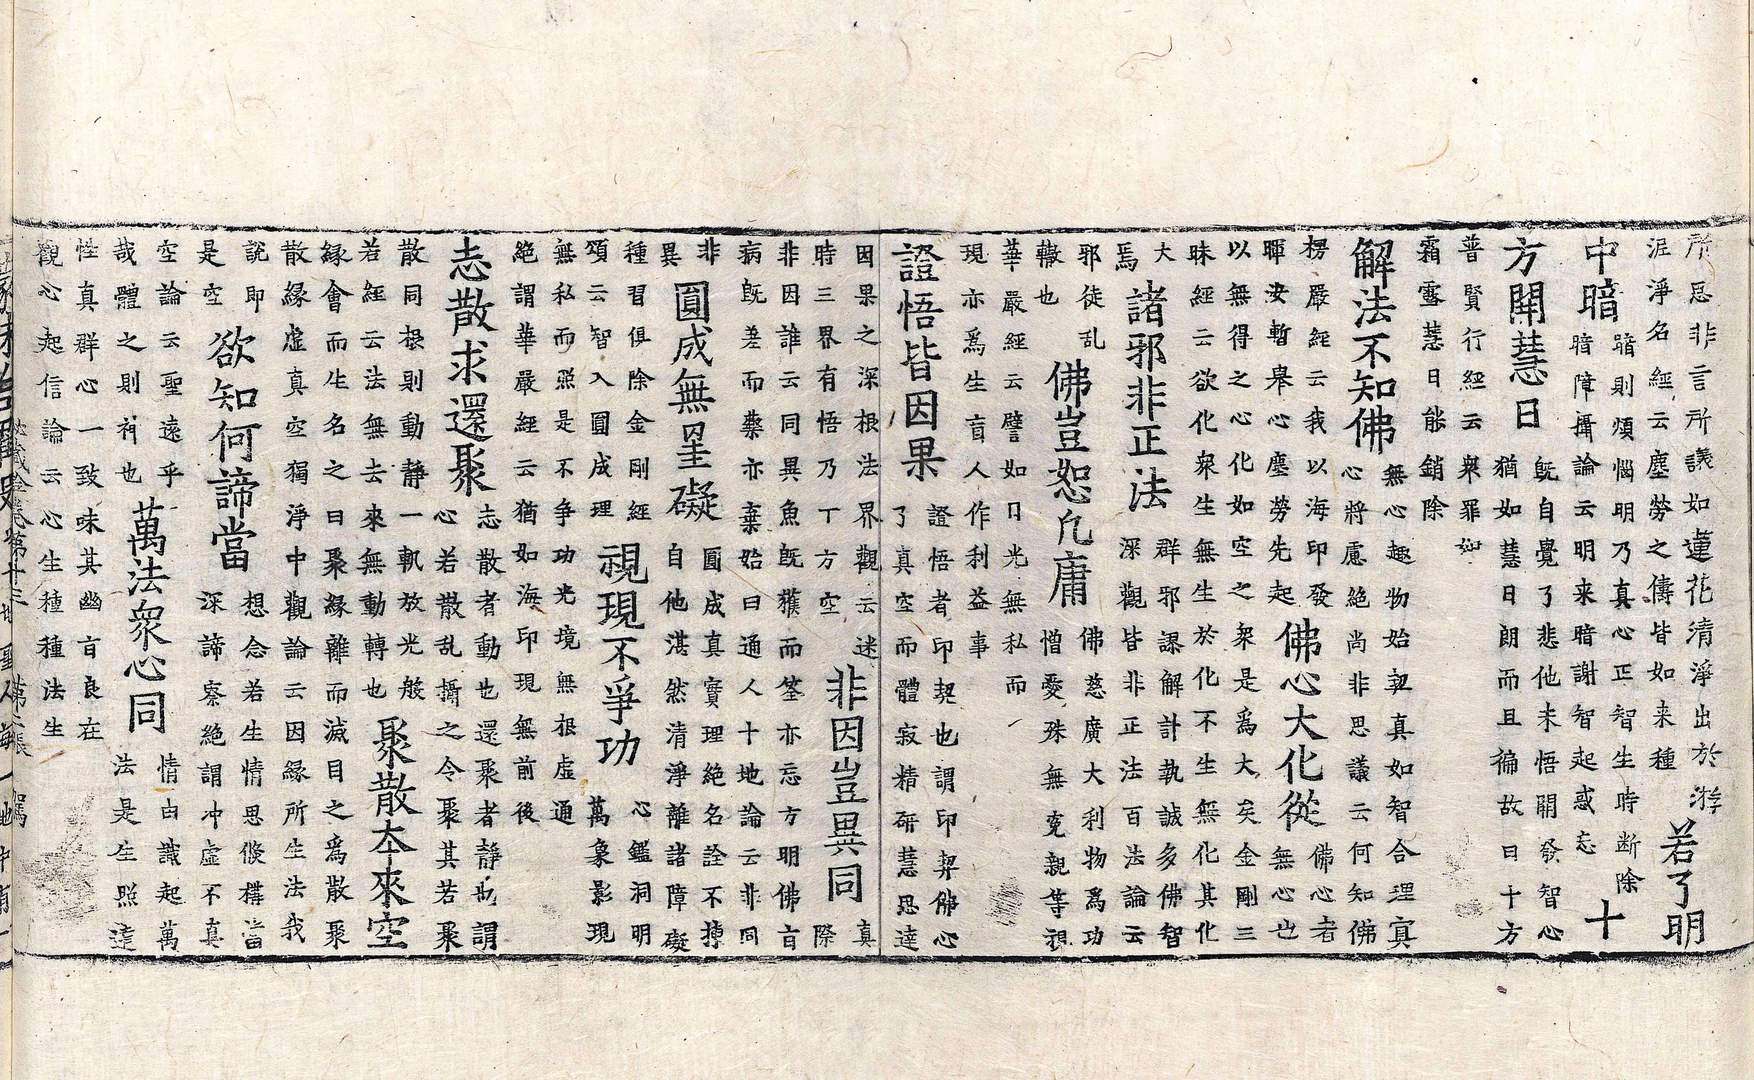 所惡非言所議如蓮花清淨出於淤
泥淨名經云塵勞之儔皆如来種
若了明
中暗
暗則煩惱明乃真心正智生時断除
暗障攝論云明来暗謝智起惑忘
十
方開慧日
旣自覺了悲他未悟開發智心
猶如慧日朗而且徧故曰十方
普賢行經云衆罪如
霜露慧日能銷除
解法不知佛
無心趣物始契真如智合理寘
心將慮絶尚非思議云何知佛
楞嚴經云我以海印發
暉汝暫舉心塵勞先起
佛心大化從
佛心者
無心也
以無得之心化如空之衆是爲大矣金剛三
昧經云欲化衆生無生於化不生無化其化
大
焉
諸邪非正法
群邪謬解計執誠多佛智
深觀皆非正法百法論云
邪徒乱
轍也
佛豈恕凡庸
佛慈廣大利物爲功
憎愛殊無克親等視
華嚴經云譬如日光無私而
現亦爲生盲人作利益事
證悟皆因果
證悟者印契也謂印契佛心
了真空而體寂精研慧思達
因果之深根法界觀云迷
時三界有悟乃十方空
非因豈異同
真
際
非因誰云同異魚旣獲而筌亦忘方明佛旨
病旣差而藥亦棄始曰通人十地論云非同
非
異
圓成無罣礙
圓成真實理絶名詮不摶
自他湛然清淨離諸障礙
種習俱除金剛經
頌云智入圓成理
視現不爭功
心鑑洞明
萬象影現
無私而照是不争功光境無根虚通
絶謂華嚴經云猶如海印現無前後
志散求還聚
志散者動也還聚者静也謂
心若散乱攝之令聚其若聚
散同根則動静一軌放光般
若經云法無去來無動轉也
聚散本來空
緣會而生名之曰聚緣離而滅目之爲散聚
散緣虚真空獨淨中觀論云因緣所生法我
說即
是空
欲知何諦當
想念若生情思倏構當
深諦察絶謂冲虚不真
空論云聖遠乎
哉體之則神也
萬法衆心同
情白識起萬
法是生照達
性真群心一致味其幽旨良在
觀心起信論云心生種種法生